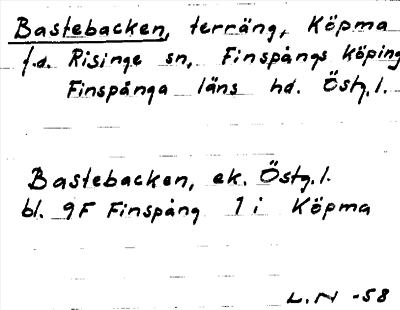 Bastebacken, terräng, Köpma
f.d. Risinge sn, Finspångs köping
Finspånga läns hd. Östg.l.
Bastebacken, ek. Östg.l.
bl. 9F Finspång 1 i Köpma
L.N -58